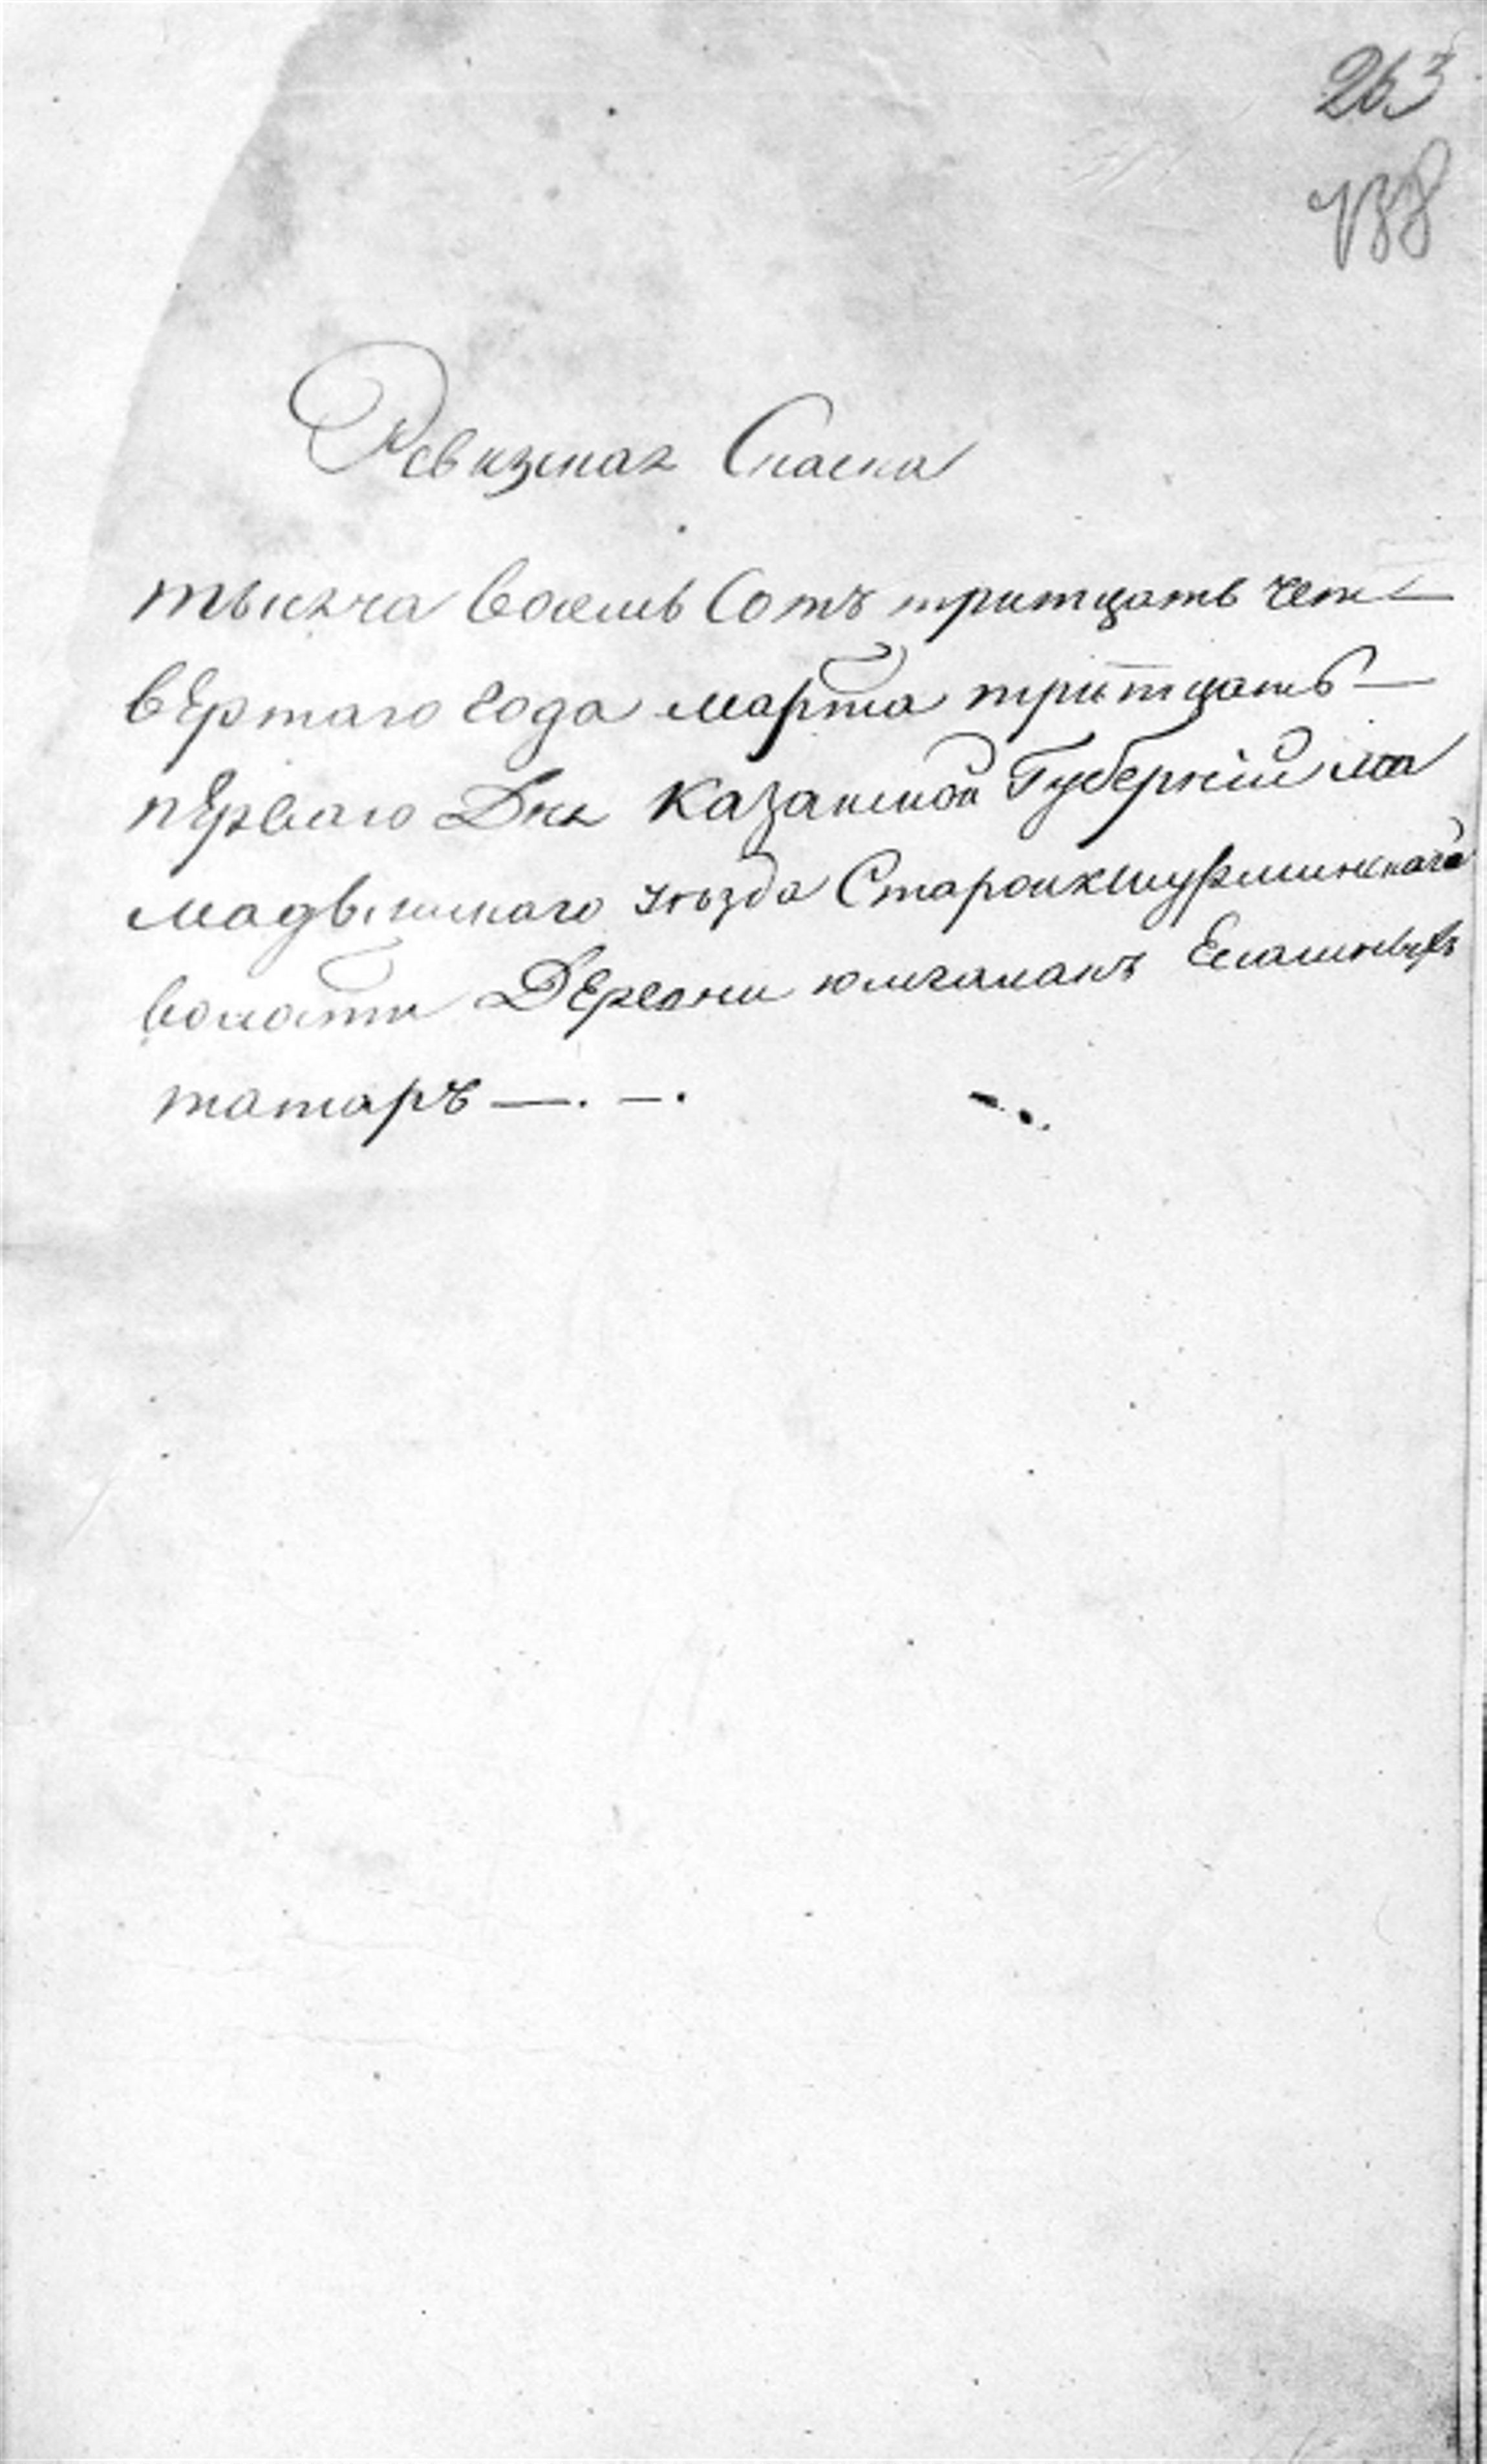 263
138
Ревизская Сказка
тысяча восемь Сотъ тритцать чет
вертаго года марта тритцать
перваго Дня Казанской Губерніи ма
мадышскаго уѣзда Староикшурминскаго
волости Деревни юлгаманъ Ясашныхъ
татаръ